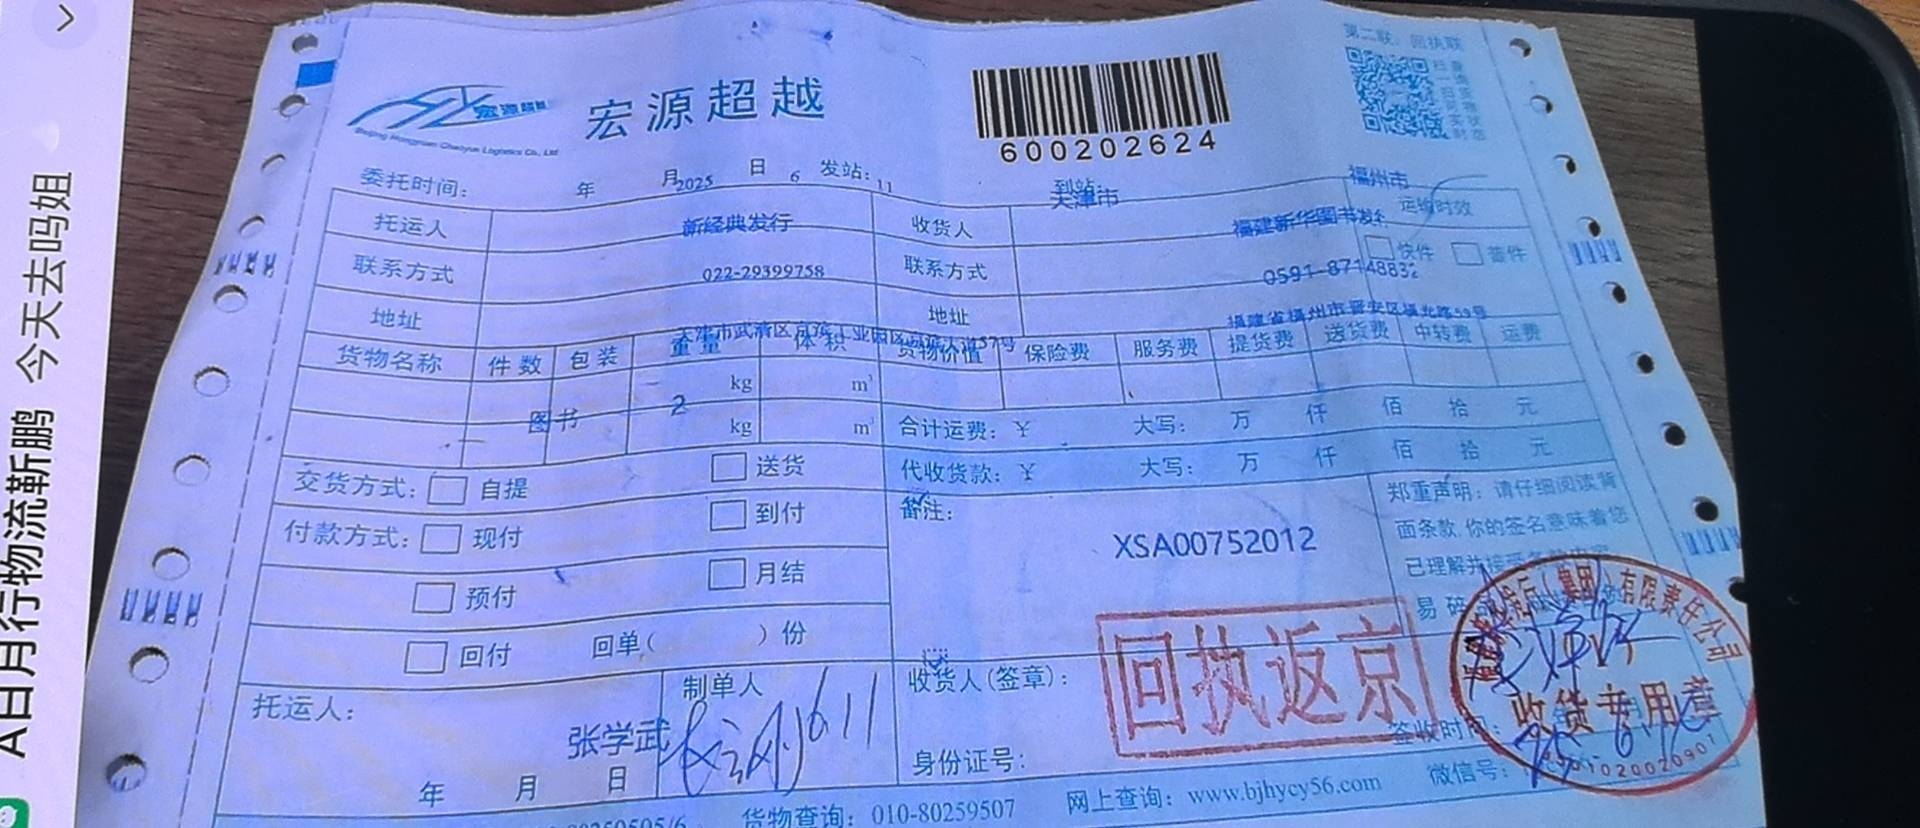 A日月行物流靳鹏 今天去吗姐
第二联：回执联
宏源超越
宏源超越
Beijing Hongyuan Chaoyue Logistics Co., Ltd
600202624
委托时间： 年 月 2025 日 6 发站：11 到站： 天津市 福州市
托运人 新经典发行 收货人 福建新华图书发行 运输时效
联系方式 022-29399758 联系方式 0591-87148832 快件 普件
地址 天津市武清区京滨工业园区京滨大道57号 地址 福建省福州市晋安区福光路59号
货物名称 件数 包装 重量 体积 货物价值 保险费 服务费 提货费 送货费 中转费 运费
kg m³
图书 2
kg m³ 合计运费：￥ 大写： 万 仟 佰 拾 元
交货方式： 自提 送货 代收货款：￥ 大写： 万 仟 佰 拾 元
付款方式： 现付 到付 备注： 郑重声明：请仔细阅读背
面条款,你的签名意味着您
XSA00752012
预付 月结 已理解并接受
易碎
回付 回单（ ）份
回执返京
（集团）有限责任公司
收货专用章
托运人： 张学武 制单人 611 收货人(签章)：
签收时间：
年 月 日 身份证号：
货物查询：010-80259507 网上查询：www.bjhycy56.com 微信号：